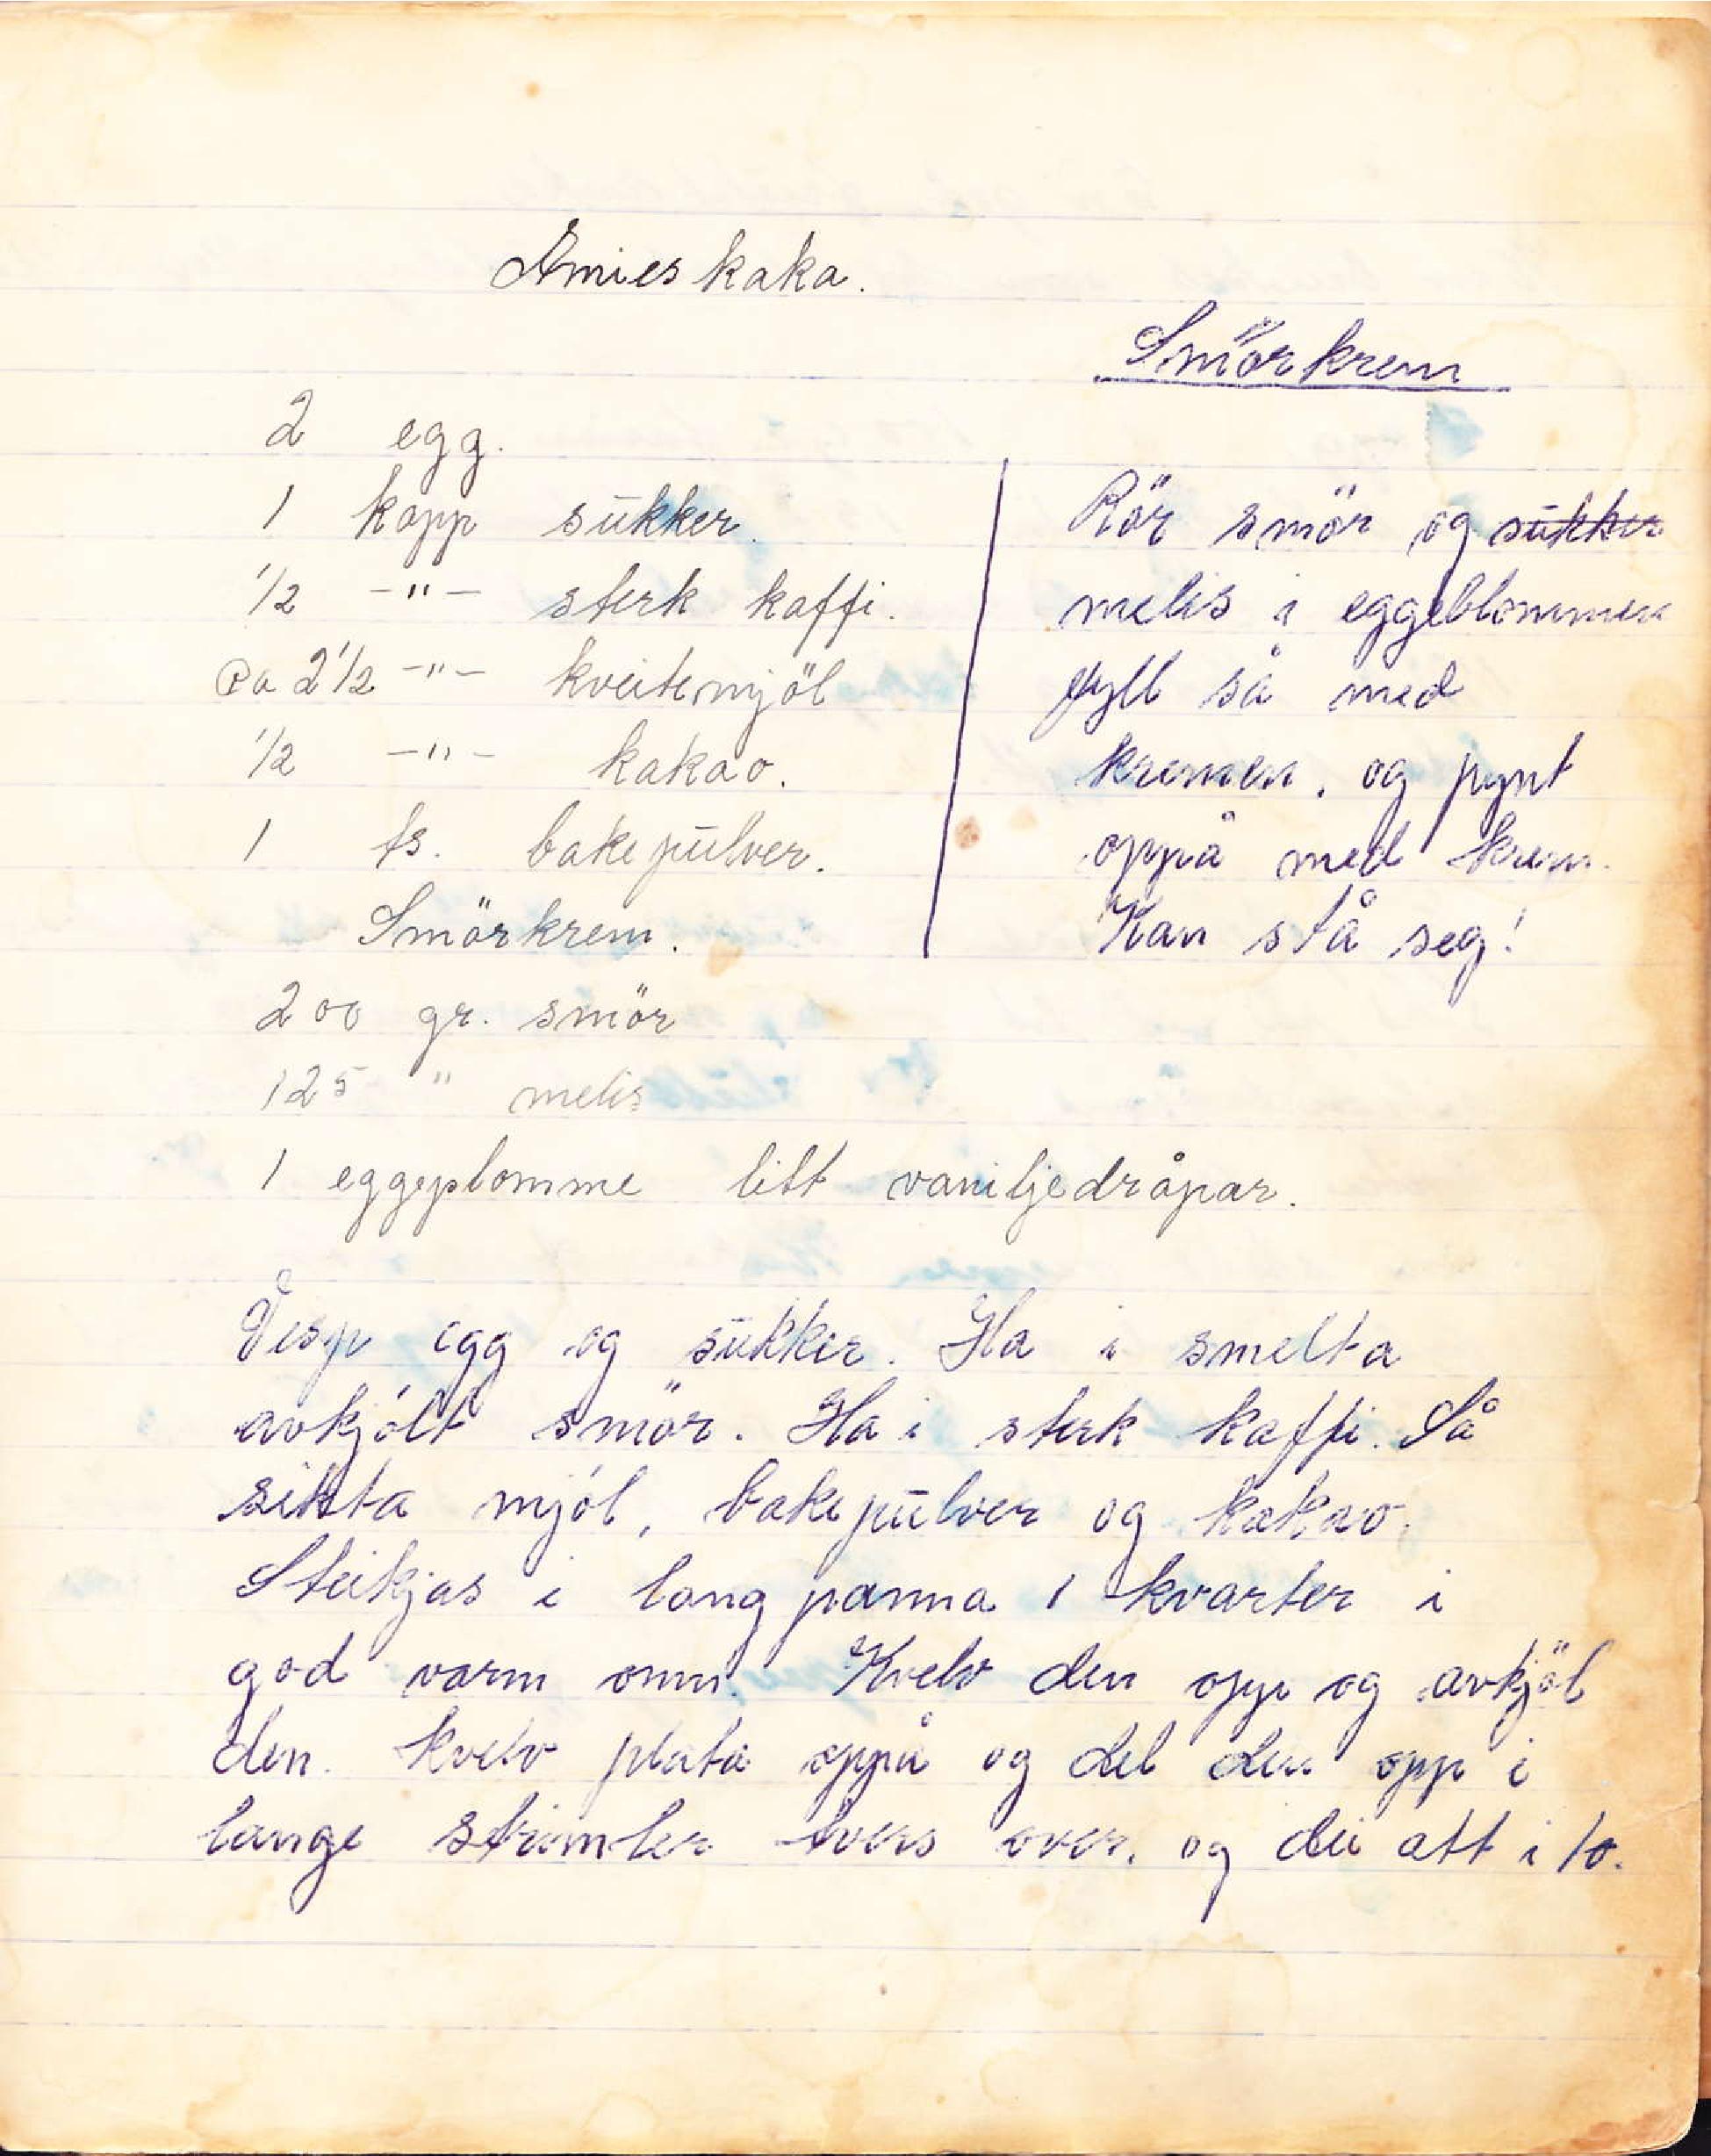 Amies kaka.
2 egg.
1 kopp sukker.
1/2 -"- sterk kaffi.
Ca 2 1/2 -"- kveitemjöl
1/2 -"- kakao.
1 ts. bakepulver.
Smörkrem.
200 gr. smör
125 " melis
1 eggeplomme litt vaniljedråpar.
Smörkrem
Rör smör og sukker
melis i eggeblommen
fyll så med
kremen, og pynt
oppå med krem.
Kan stå seg!
Visp egg og sukker. Ha i smelta
avkjölt smör. Ha i sterk kaffi. Så
sikta mjöl, bakepulver og kakao.
Steikjas i lang panna 1 kvarter i
god varm omn. Kvelv den opp og avkjöl
den. kvelv plata oppå og del den opp i
lange strimler tvers over, og dei att i to.